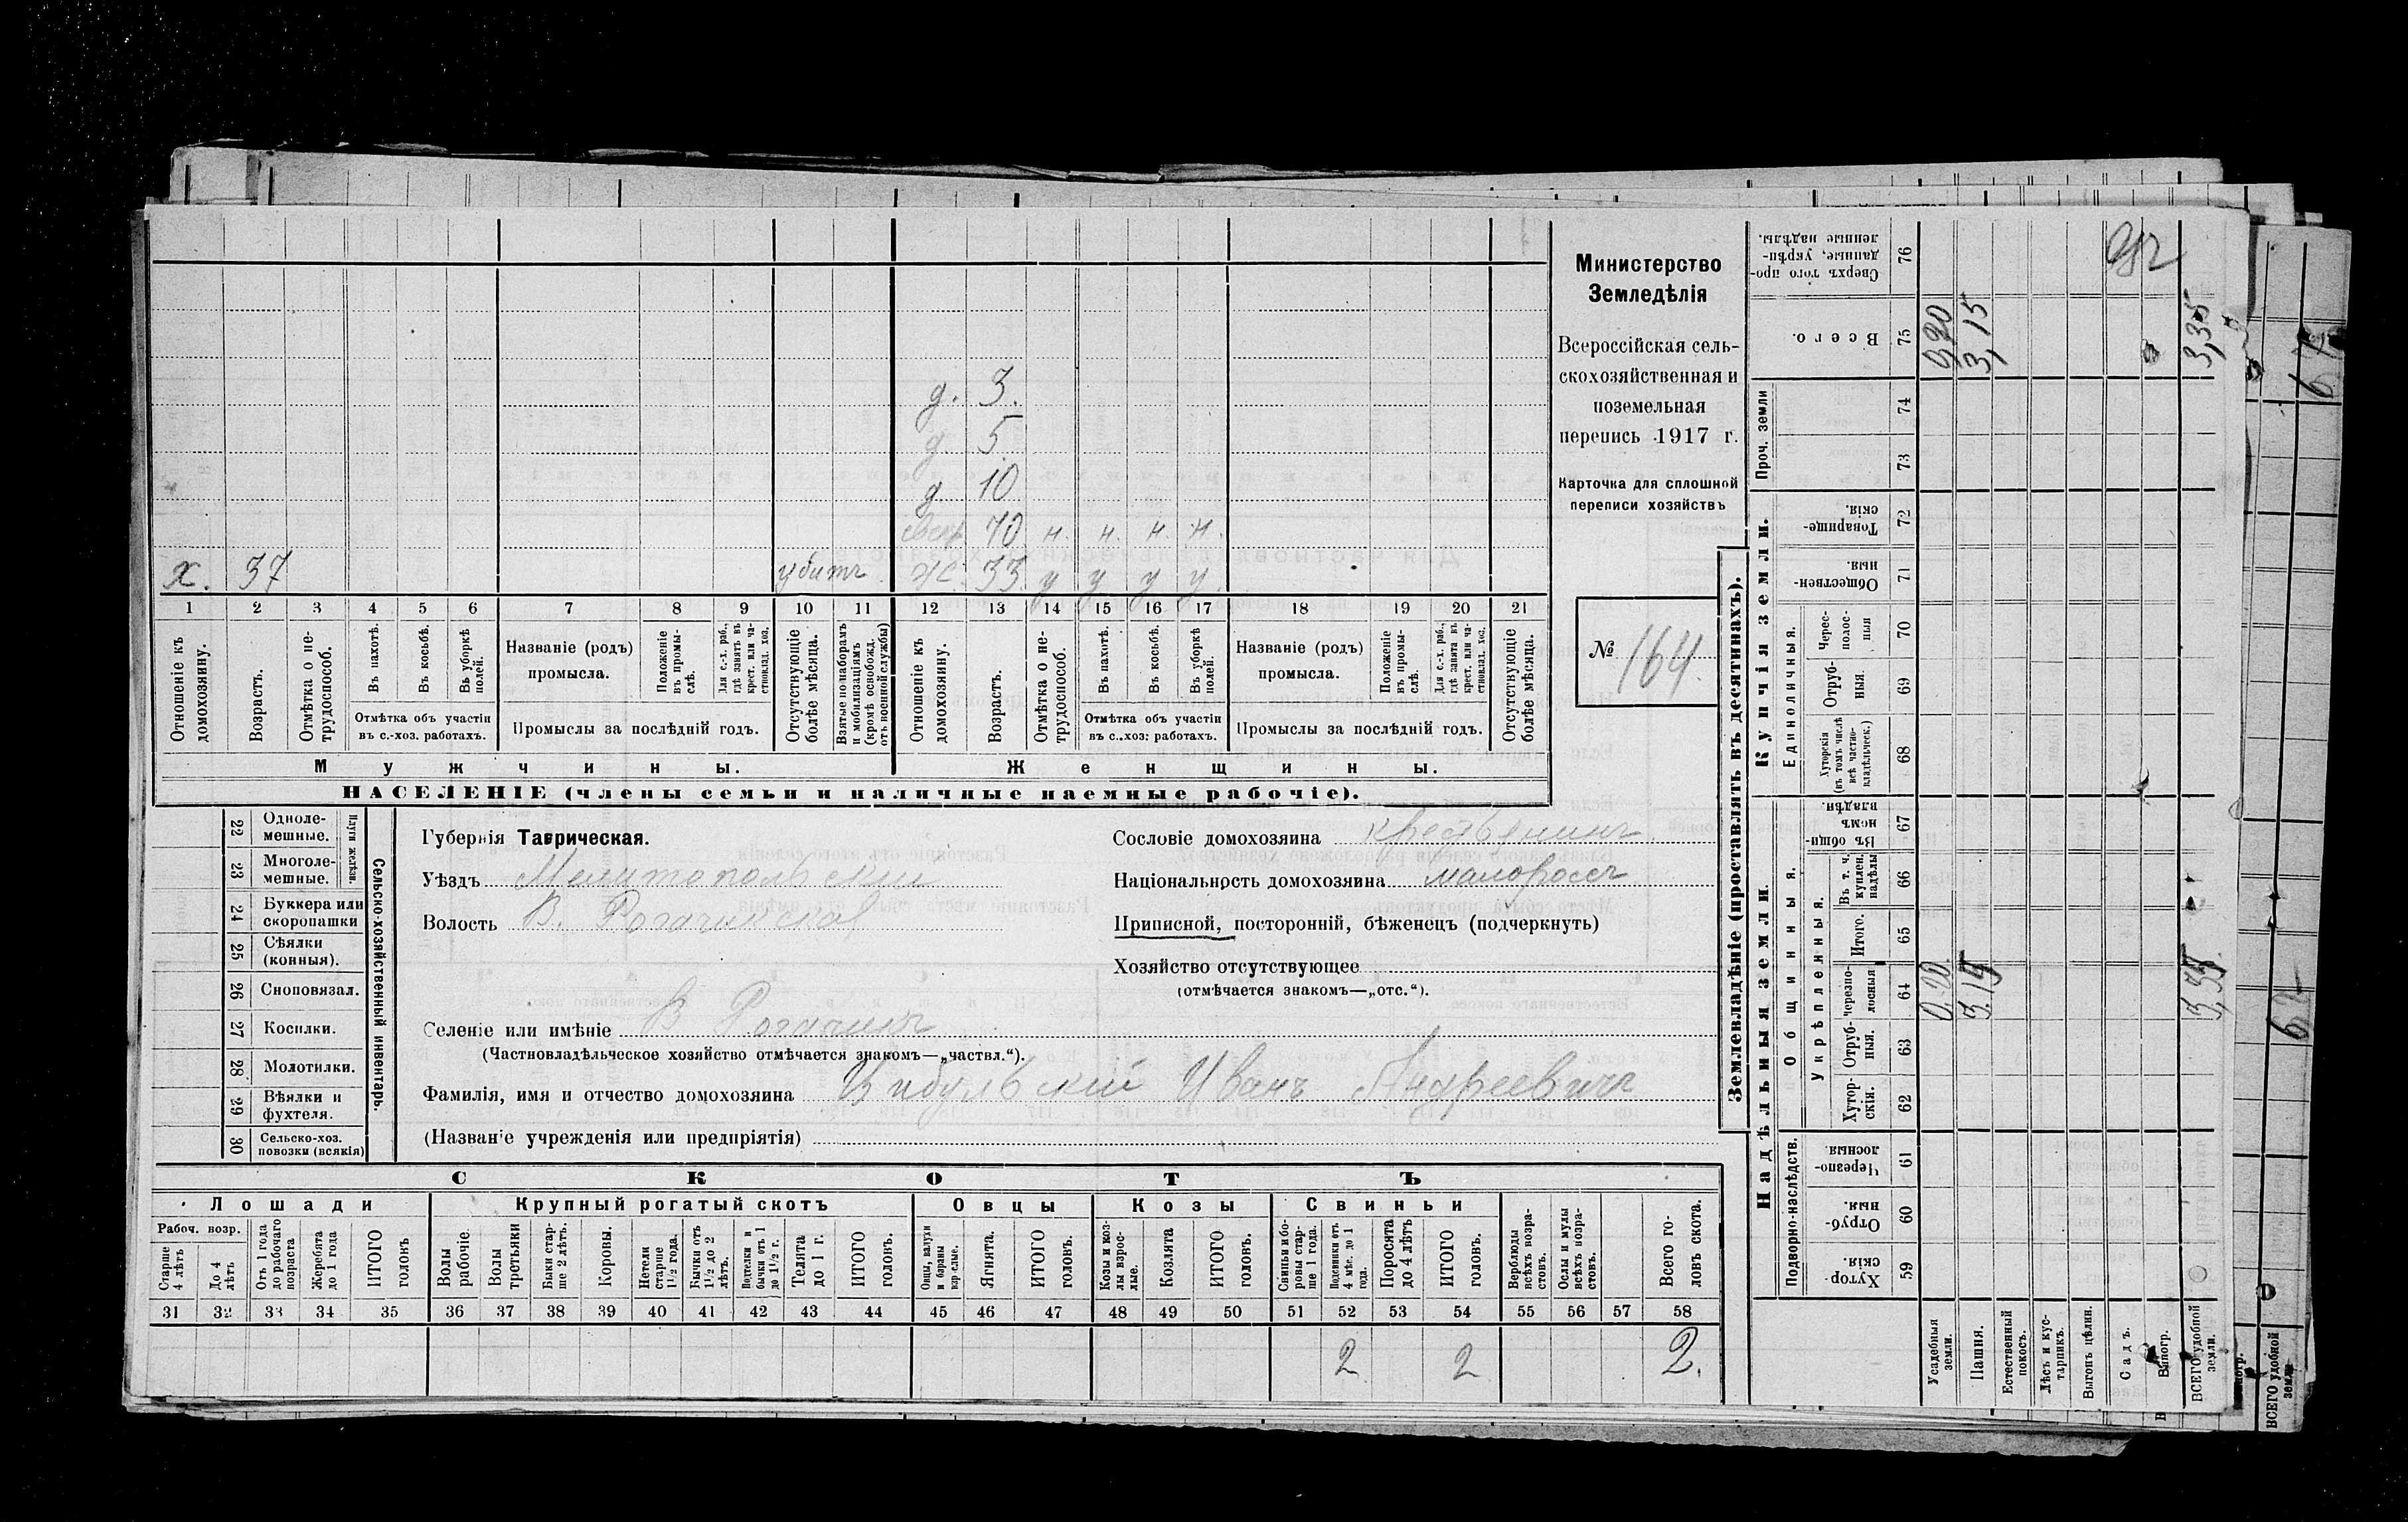 д. 3.
д. 5
д. 10
свекр. 70 н. н. н. н.
х. 37 убитъ ж. 33 у у у у
1 2 3 4 5 6 7 8 9 10 11 12 13 14 15 16 17 18 19 20 21
Отношеніе къ домохозяину.
Возрастъ.
Отмѣтка о нетрудоспособ.
Въ пахотѣ.
Въ косьбѣ.
Въ уборкѣ полей.
Отмѣтка объ участіи
въ с.-хоз. работахъ.
Названіе (родъ)
промысла.
Положеніе въ промыслѣ.
Для с.-х. раб., гдѣ занятъ въ крест. или частновлад. хоз.
Промыслы за послѣдній годъ.
Отсутствующіе болѣе мѣсяца.
Взятые по наборамъ и мобилизаціямъ (кромѣ освобожд. отъ военной службы)
Отношеніе къ домохозяину.
Возрастъ.
Отмѣтка о нетрудоспособ.
Въ пахотѣ.
Въ косьбѣ.
Въ уборкѣ полей.
Отмѣтка объ участіи
въ с.-хоз. работахъ.
Названіе (родъ)
промысла.
Положеніе въ промыслѣ.
Для с.-х. раб., гдѣ занята въ крест. или частновлад. хоз.
Промыслы за послѣдній годъ.
Отсутствующіе болѣе мѣсяца.
Мужчины. Женщины.
НАСЕЛЕНІЕ (члены семьи и наличные наемные рабочіе).
Министерство
Земледѣлія
Всероссійская сель-
скохозяйственная и
поземельная
перепись 1917 г.
Карточка для сплошной
переписи хозяйствъ
№ 164.
22 Одноле-
мешные.
23 Многоле-
мешные.
Плуги желѣзн.
24 Буккера или
скоропашки
25 Сѣялки
(конныя).
26 Сноповязал.
27 Косилки.
28 Молотилки.
29 Вѣялки и
фухтеля.
30 Сельско-хоз.
повозки (всякія)
Сельско-хозяйственный инвентарь.
Губернія Таврическая.
Уѣздъ Мелитопольскій
Волость В. Рогачикская
Селеніе или имѣніе В Рогачикъ
(Частновладѣльческое хозяйство отмѣчается знакомъ—„частвл.“).
Фамилія, имя и отчество домохозяина Цибульскій Иванъ Андреевичъ
(Названіе учрежденія или предпріятія)
Сословіе домохозяина крестьянинъ.
Національность домохозяина малороссъ
Приписной, посторонній, бѣженецъ (подчеркнуть)
Хозяйство отсутствующее
(отмѣчается знакомъ—„отс.“).
СКОТЪ
Лошади Крупный рогатый скотъ Овцы Козы Свиньи
Рабоч. возр.
Старше 4 лѣтъ
До 4 лѣтъ
Отъ 1 года до рабочаго возраста
Жеребята до 1 года
ИТОГО головъ
Волы рабочіе.
Волы третьяки
Быки старше 2 лѣтъ.
Коровы.
Нетели старше 1½ года.
Бычки отъ 1½ до 2 лѣтъ.
Подтелки и бычки отъ 1 до 1½ г.
Телята до 1 г.
ИТОГО головъ.
Овцы, валухи и бараны взрослые.
Ягнята.
ИТОГО головъ.
Козы и козлы взрослые.
Козлята
ИТОГО головъ.
Свиньи и боровы старше 1 года.
Подсвинки отъ 4 мѣс. до 1 года.
Поросята до 4 лѣтъ
ИТОГО головъ.
Верблюды всѣхъ возрастовъ.
Ослы и мулы всѣхъ возрастовъ.
Всего головъ скота.
31 32 33 34 35 36 37 38 39 40 41 42 43 44 45 46 47 48 49 50 51 52 53 54 55 56 57 58
2 2 2.
Землевладѣніе (проставлять въ десятинахъ).
Надѣльныя земли. Купчія земли. Проч. земли
Подворно-наслѣдств. Общинныя. Единоличныя.
Укрѣпленныя.
Хуторскія. 59
Отрубныя. 60
Черезполосныя. 61
Хуторскія. 62
Отрубныя. 63
Черезполосныя 64
Итого. 65
Въ т. ч. куплен. надѣлы 66
Въ общиномъ владѣн. 67
Хуторскія (въ томъ числѣ всѣ частновладѣльческ.) 68
Отрубныя. 69
Чересполосныя 70
Общественныя. 71
Товарищескія. 72
73
74
Всего. 75
Сверхъ того проданные, укрѣпленные надѣлы. 76
Усадебныя земли. 0,20 0,20
Пашня. 3,15 3,15
Естественный покосъ.
Лѣсъ и кустарникъ.
Выгонъ цѣлин.
Садъ.
Виногр.
ВСЕГО удобной земли. 3,35 3,35
ВСЕГО удобной земли